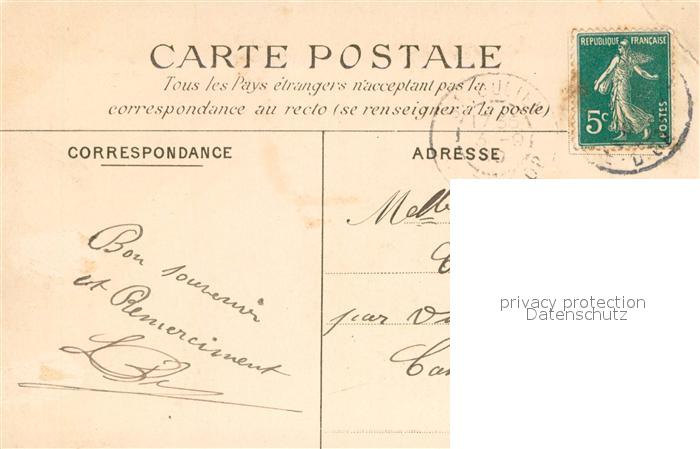 CARTE POSTALE
Tous les Pays étrangers n'acceptant pas la
correspondance au recto (se renseigner à la poste)
REPUBLIQUE FRANÇAISE
5c
POSTES
CORRESPONDANCE
ADRESSE
Bon souvenir
et Remerciment
Melle
par
privacy protection
Datenschutz